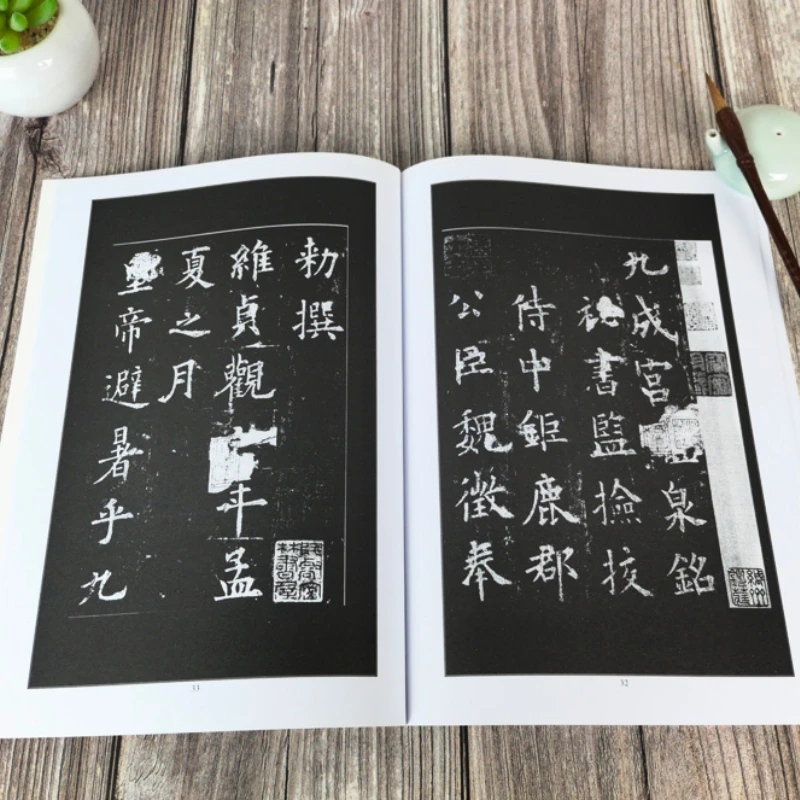 九成宮醴泉銘
秘書監撿挍
侍中鉅鹿郡
公臣魏徵奉
32
勑撰
維貞觀六年孟
夏之月
皇帝避暑乎九
33